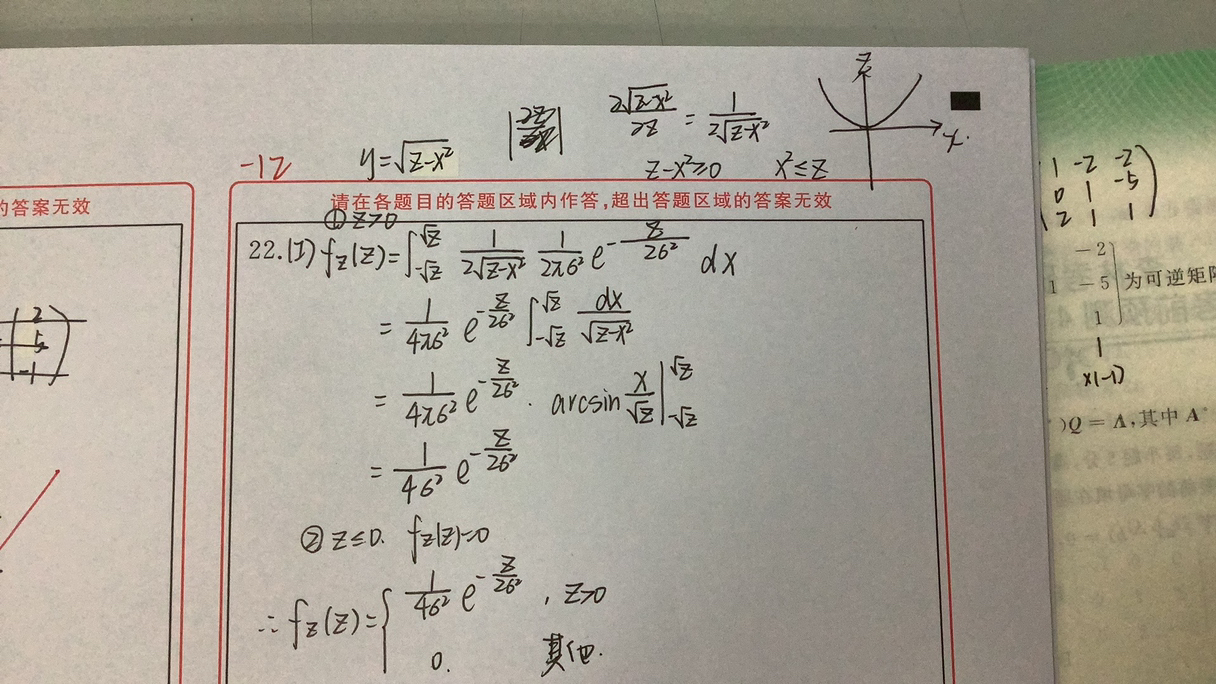 2√(z-x²)/2z = 1/(2√(z-x²))
z
x.
-12
y=√(z-x²)
z-x²≥0 x²≤z
的答案无效
请在各题目的答题区域内作答,超出答题区域的答案无效
① z>0
22.(I) f_Z(z)=∫_{-√z}^{√z} 1/(2√(z-x²)) 1/(2π6²) e^{-z/(26²)} dx
= 1/(4π6²) e^{-z/(26²)} ∫_{-√z}^{√z} dx/√(z-x²)
= 1/(4π6²) e^{-z/(26²)} · arcsin x/√z |_{-√z}^{√z}
= 1/(46²) e^{-z/(26²)}
② z≤0. f_Z(z)=0
∴ f_Z(z)={ 1/(46²) e^{-z/(26²)} , z>0
0. 其他.
2
5
-1
1 -2 -2
0 1 -5
2 1 1
-2
1 -5 为可逆矩阵
1
1
x(-1)
)Q = Λ,其中 A*